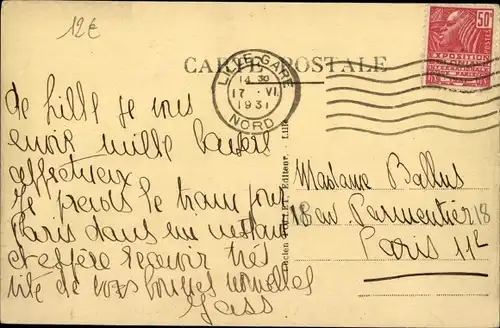 12€
CARTE POSTALE
LILLE-GARE
14 30
17 · VI
1931
NORD
50c
EXPOSITION
COLONIALE
INTERNATIONALE
PARIS
1931
De Lille je vous
envoie mille baisers
affectueux
Je prends le train pour
Paris dans un instant
et espère recevoir très
vite de vos bonnes nouvelles
Madame Ballus
18 av Parmentier 18
Paris 11e
Editeur. Lille